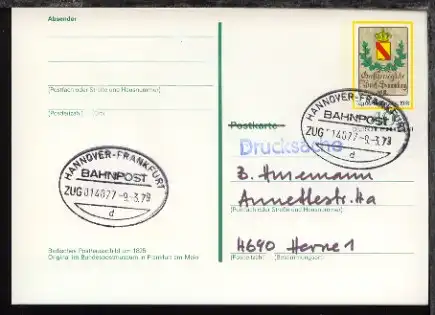 Absender
(Postfach oder Straße und Hausnummer)
(Postleitzahl)
HANNOVER-FRANKFURT
BAHNPOST
ZUG 014077 -9.3.79
d
Badisches Posthausschild um 1825
Original im Bundespostmuseum in Frankfurt am Main
HANNOVER-FRANKFURT
BAHNPOST
ZUG 014077 -9.3.79
d
Postkarte
Drucksache
(Postfach oder Straße und Hausnummer)
4690 Herne 1
(Postleitzahl) (Bestimmungsort)